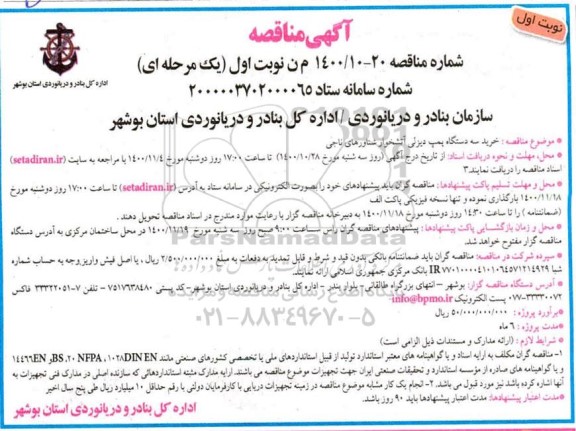 نوبت اول
آگهی مناقصه
شماره مناقصه ۲۰-۱۴۰۰/۱۰ م ن نوبت اول (یک مرحله ای)
شماره سامانه ستاد ۲۰۰۰۰۰۳۷۰۲۰۰۰۰۶۵
اداره کل بنادر و دریانوردی استان بوشهر
سازمان بنادر و دریانوردی /اداره کل بنادر و دریانوردی استان بوشهر
موضوع مناقصه: خرید سه دستگاه پمپ دیزلی آتشخوار شناورهای ناجی
محل، مهلت و نحوه دریافت اسناد: از تاریخ درج آگهی (روز سه شنبه مورخ ۱۴۰۰/۱۰/۲۸) تا ساعت ۱۷:۰۰ روز دوشنبه مورخ ۱۴۰۰/۱۱/۴ با مراجعه به سایت (setadiran.ir)
اسناد مناقصه را دریافت نمایند.
محل و مهلت تسلیم پاکت پیشنهادها: مناقصه گران باید پیشنهادهای خود را بصورت الکترونیکی در سامانه ستاد به آدرس (setadiran.ir) تا ساعت ۱۷:۰۰ روز دوشنبه مورخ
۱۴۰۰/۱۱/۱۸ بارگذاری نموده و تنها نسخه فیزیکی پاکت الف
(ضمانتنامه) را تا ساعت ۱۴:۳۰ روز دوشنبه مورخ ۱۴۰۰/۱۱/۱۸ به دبیرخانه مناقصه گزار با رعایت موارد مندرج در اسناد مناقصه تحویل دهند.
محل و زمان بازگشایی پاکت پیشنهادها: پیشنهادهای مناقصه گران راس ساعت ۹:۰۰ صبح روز سه شنبه مورخ ۱۴۰۰/۱۱/۱۹ در محل ساختمان مرکزی به آدرس دستگاه
مناقصه گزار مفتوح خواهد شد.
سپرده شرکت در مناقصه: مناقصه گران باید ضمانتنامه بانکی بدون قید و شرط و قابل تمدید به دفعات به مبلغ ۲/۵۰۰/۰۰۰/۰۰۰ ریال، یا اصل فیش واریز وجه به حساب شماره
شبا IR ۷۷۰۱۰۰۰۰۴۱۰۱۰۶۴۵۷۱۲۱۴۹۲۹ بانک مرکزی جمهوری اسلامی ارائه نمایند.
آدرس دستگاه مناقصه گزار: بوشهر – انتهای بزرگراه طالقانی- بلوار بندر - اداره کل بنادر و دریانوردی استان بوشهر- کد پستی ۷۵۱۷۶۳۸۴۸۰ – تلفن ۷-۳۳۳۲۲۰۵۱ فاکس
۰۷۷-۳۳۳۳۰۰۷۲ پست الکترونیک info@bpmo.ir
برآورد پروژه: ۵۰/۰۰۰/۰۰۰/۰۰۰ ریال
مدت پروژه: ۶ ماه
شرایط لازم: (ارائه مدارک و مستندات ذیل الزامی است)
۱- مناقصه گران مکلف به ارایه اسناد و یا گواهینامه های معتبر استاندارد تولید از قبیل استانداردهای ملی یا تخصصی کشورهای صنعتی مانند BS، ۲۰ NFPA، ۱۰۲۸DIN EN، ۱۴۴۶۶EN
و یا گواهینامه های صادره از مؤسسه استاندارد و تحقیقات صنعتی ایران جهت تجهیزات موضوع مناقصه می باشند. ارایه مدارک مثبته استانداردهائی که سازنده اصلی در مدارک فنی تجهیزات به
آنها اشاره کرده باشد نیز مورد قبول می باشد. ۲- انجام یک کار مشابه موضوع مناقصه در زمینه تجهیزات دریایی با کارفرمایان دولتی با رقم حداقل ۱۰ میلیارد ریال طی پنج سال اخیر
مدت اعتبار پیشنهادها: مدت اعتبار پیشنهادها باید ۹۰ روز باشد.
اداره کل بنادر و دریانوردی استان بوشهر
ParsNamadData
۰۲۱-۸۸۳۴۹۶۷۰-۵